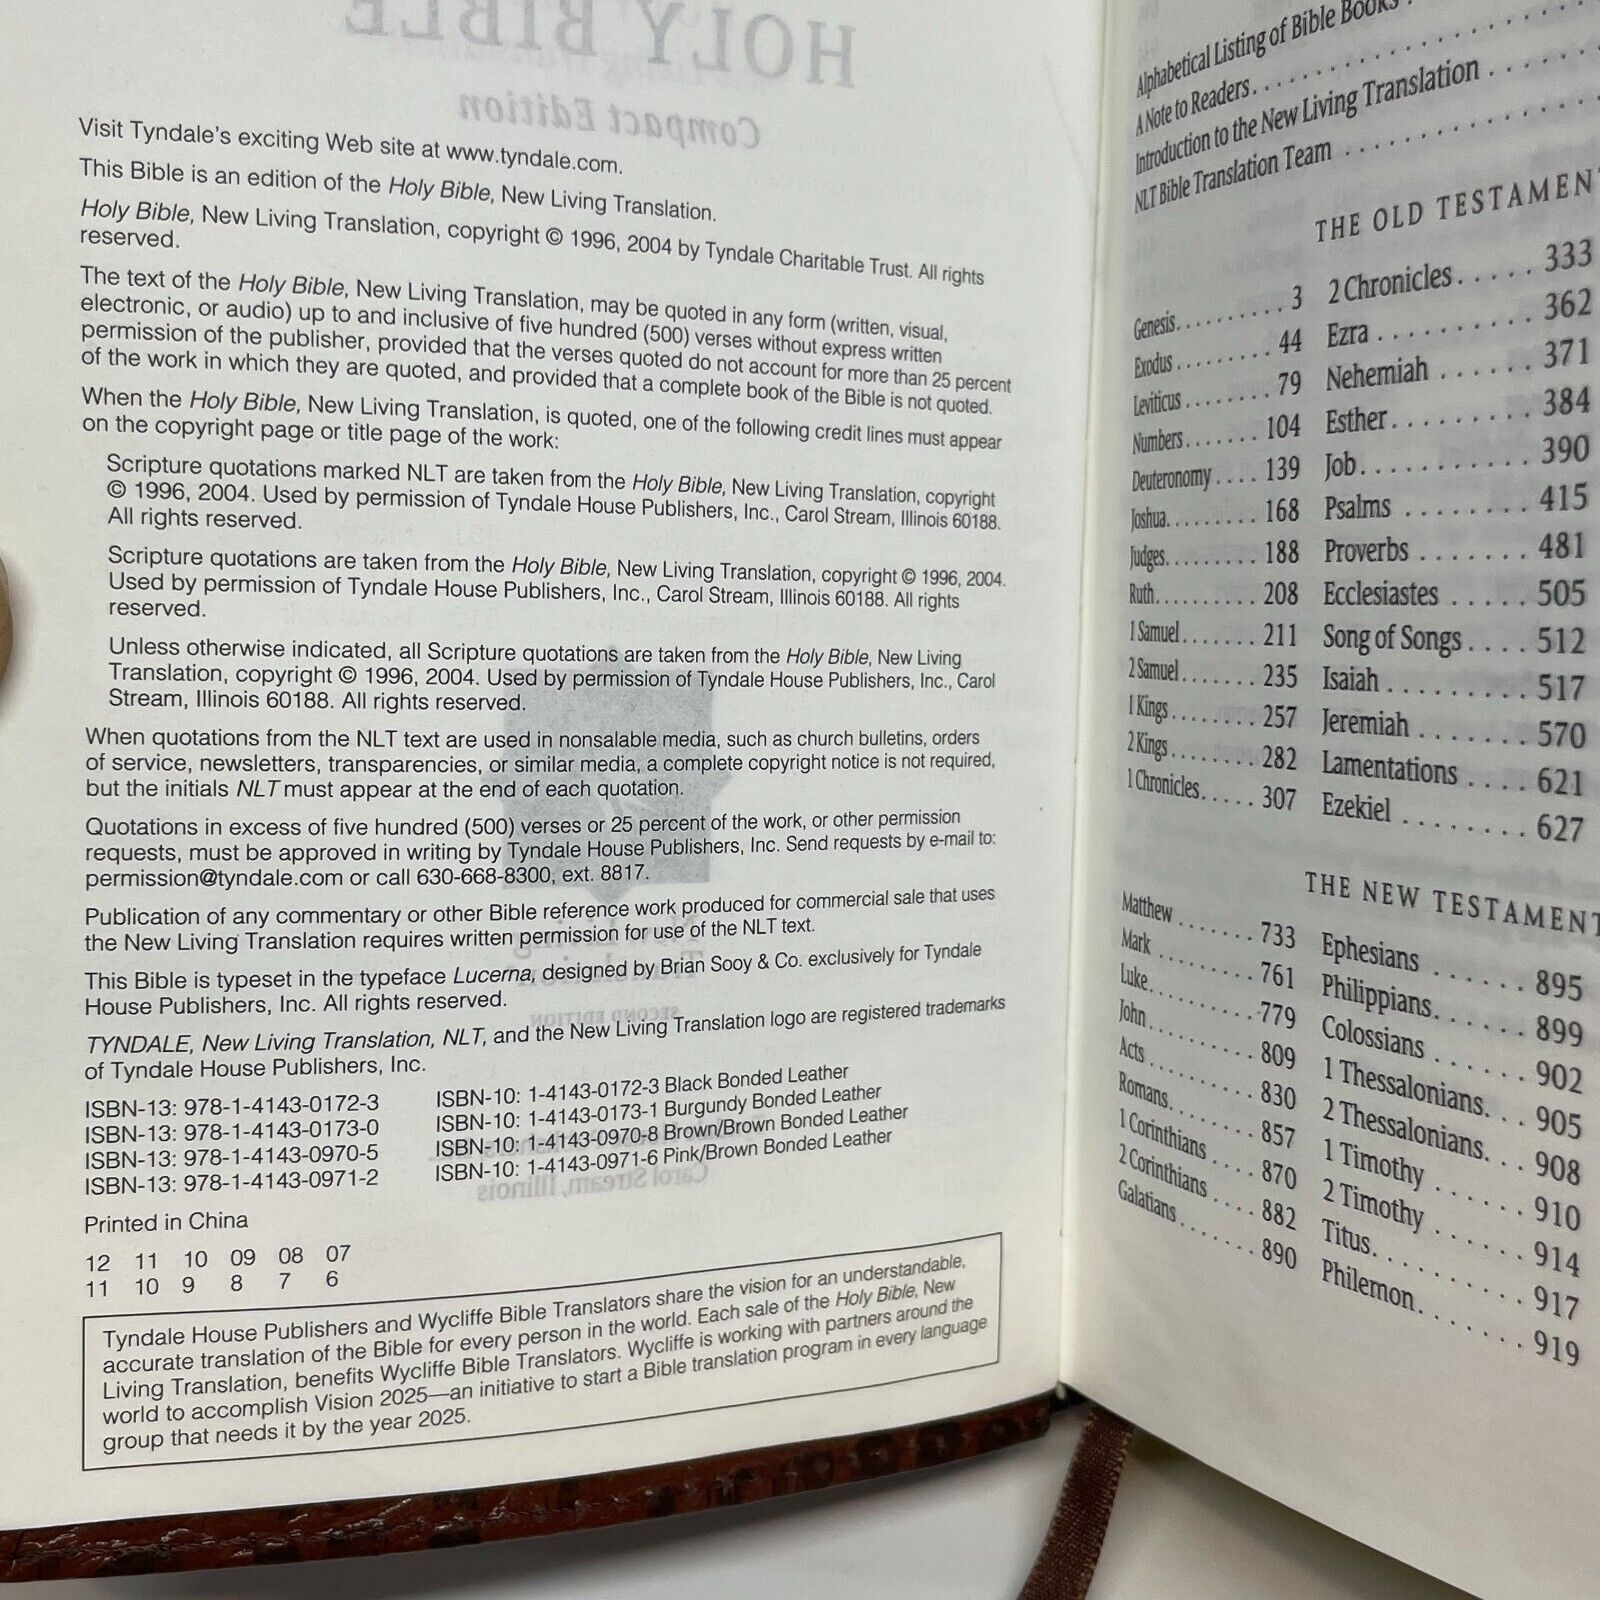 HOLY BIBLE
Compact Edition
Visit Tyndale's exciting Web site at www.tyndale.com.
This Bible is an edition of the Holy Bible, New Living Translation.
Holy Bible, New Living Translation, copyright © 1996, 2004 by Tyndale Charitable Trust. All rights
reserved.
The text of the Holy Bible, New Living Translation, may be quoted in any form (written, visual,
electronic, or audio) up to and inclusive of five hundred (500) verses without express written
permission of the publisher, provided that the verses quoted do not account for more than 25 percent
of the work in which they are quoted, and provided that a complete book of the Bible is not quoted.
When the Holy Bible, New Living Translation, is quoted, one of the following credit lines must appear
on the copyright page or title page of the work:
Scripture quotations marked NLT are taken from the Holy Bible, New Living Translation, copyright
© 1996, 2004. Used by permission of Tyndale House Publishers, Inc., Carol Stream, Illinois 60188.
All rights reserved.
Scripture quotations are taken from the Holy Bible, New Living Translation, copyright © 1996, 2004.
Used by permission of Tyndale House Publishers, Inc., Carol Stream, Illinois 60188. All rights
reserved.
Unless otherwise indicated, all Scripture quotations are taken from the Holy Bible, New Living
Translation, copyright © 1996, 2004. Used by permission of Tyndale House Publishers, Inc., Carol
Stream, Illinois 60188. All rights reserved.
When quotations from the NLT text are used in nonsalable media, such as church bulletins, orders
of service, newsletters, transparencies, or similar media, a complete copyright notice is not required,
but the initials NLT must appear at the end of each quotation.
Quotations in excess of five hundred (500) verses or 25 percent of the work, or other permission
requests, must be approved in writing by Tyndale House Publishers, Inc. Send requests by e-mail to:
permission@tyndale.com or call 630-668-8300, ext. 8817.
Publication of any commentary or other Bible reference work produced for commercial sale that uses
the New Living Translation requires written permission for use of the NLT text.
This Bible is typeset in the typeface Lucerna, designed by Brian Sooy & Co. exclusively for Tyndale
House Publishers, Inc. All rights reserved.
SECOND EDITION
TYNDALE, New Living Translation, NLT, and the New Living Translation logo are registered trademarks
of Tyndale House Publishers, Inc.
ISBN-13: 978-1-4143-0172-3 ISBN-10: 1-4143-0172-3 Black Bonded Leather
ISBN-13: 978-1-4143-0173-0 ISBN-10: 1-4143-0173-1 Burgundy Bonded Leather
ISBN-13: 978-1-4143-0970-5 ISBN-10: 1-4143-0970-8 Brown/Brown Bonded Leather
ISBN-13: 978-1-4143-0971-2 ISBN-10: 1-4143-0971-6 Pink/Brown Bonded Leather
Carol Stream, Illinois
Printed in China
12 11 10 09 08 07
11 10 9 8 7 6
Tyndale House Publishers and Wycliffe Bible Translators share the vision for an understandable,
accurate translation of the Bible for every person in the world. Each sale of the Holy Bible, New
Living Translation, benefits Wycliffe Bible Translators. Wycliffe is working with partners around the
world to accomplish Vision 2025—an initiative to start a Bible translation program in every language
group that needs it by the year 2025.
Alphabetical Listing of Bible Books . .
A Note to Readers . . . . . . . . . . . . . . . .
Introduction to the New Living Translation . . . . . .
NLT Bible Translation Team . . . . . . . . . . . . . .
THE OLD TESTAMENT
Genesis . . . . . . . . . . 3
Exodus . . . . . . . . 44
Leviticus . . . . . . . . 79
Numbers . . . . . . . 104
Deuteronomy . . . . 139
Joshua . . . . . . . . . 168
Judges . . . . . . . . . 188
Ruth . . . . . . . . . . 208
1 Samuel . . . . . . . 211
2 Samuel . . . . . . . 235
1 Kings . . . . . . . . 257
2 Kings . . . . . . . . 282
1 Chronicles . . . . . 307
2 Chronicles . . . . . 333
Ezra . . . . . . . . . . 362
Nehemiah . . . . . . 371
Esther . . . . . . . . . 384
Job . . . . . . . . . . . 390
Psalms . . . . . . . . 415
Proverbs . . . . . . . 481
Ecclesiastes . . . . . 505
Song of Songs . . . . 512
Isaiah . . . . . . . . . 517
Jeremiah . . . . . . . 570
Lamentations . . . . 621
Ezekiel . . . . . . . . 627
THE NEW TESTAMENT
Matthew . . . . . . . 733
Mark . . . . . . . . . 761
Luke . . . . . . . . . . 779
John . . . . . . . . . . 809
Acts . . . . . . . . . . 830
Romans . . . . . . . . 857
1 Corinthians . . . . 870
2 Corinthians . . . . 882
Galatians . . . . . . . 890
Ephesians . . . . . . 895
Philippians . . . . . . 899
Colossians . . . . . . 902
1 Thessalonians . . . 905
2 Thessalonians . . . 908
1 Timothy . . . . . . 910
2 Timothy . . . . . . 914
Titus . . . . . . . . . . 917
Philemon . . . . . . . 919